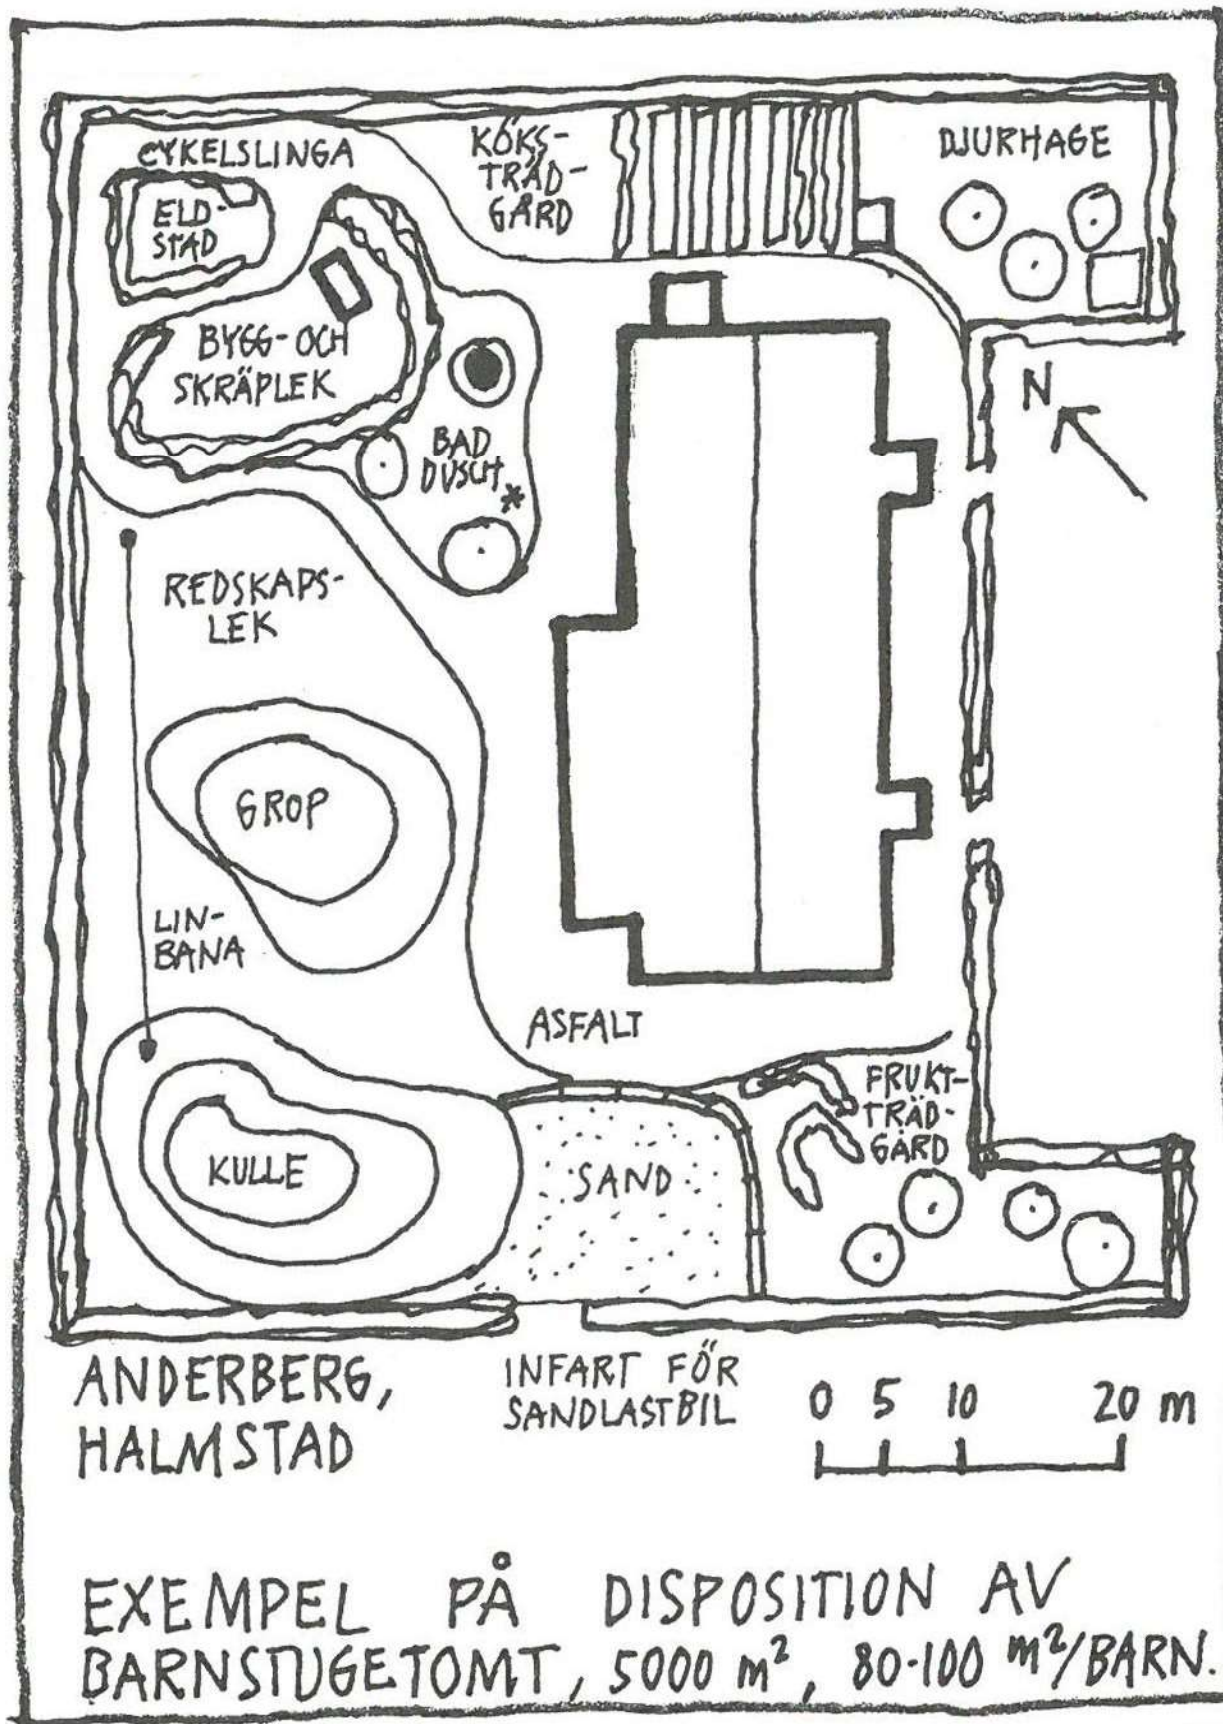 CYKELSLINGA
ELD-
STAD
KÖKS-
TRÄD-
GÅRD
DJURHAGE
BYGG-OCH
SKRÄPLEK
BAD
DUSCH
*
N
REDSKAPS-
LEK
GROP
LIN-
BANA
ASFALT
KULLE
SAND
FRUKT-
TRÄD-
GÅRD
ANDERBERG,
HALMSTAD
INFART FÖR
SANDLASTBIL
0 5 10 20 m
EXEMPEL PÅ DISPOSITION AV
BARNSTUGETOMT, 5000 m², 80-100 m²/BARN.